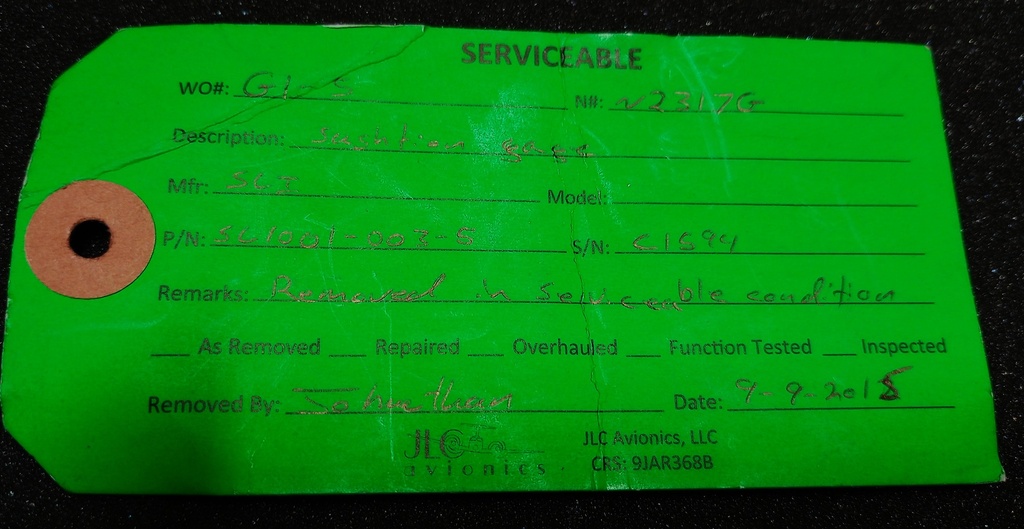 SERVICEABLE
WO#: G1-5 N#: N2317G
Description: suction gage
Mfr: SCI Model:
P/N: SC1001-003-5 S/N: C1594
Remarks: Removed in serviceable condition
As Removed Repaired Overhauled Function Tested Inspected
Removed By: Johnathan Date: 9-9-2015
JLC JLC Avionics, LLC
avionics CRS: 9JAR368B